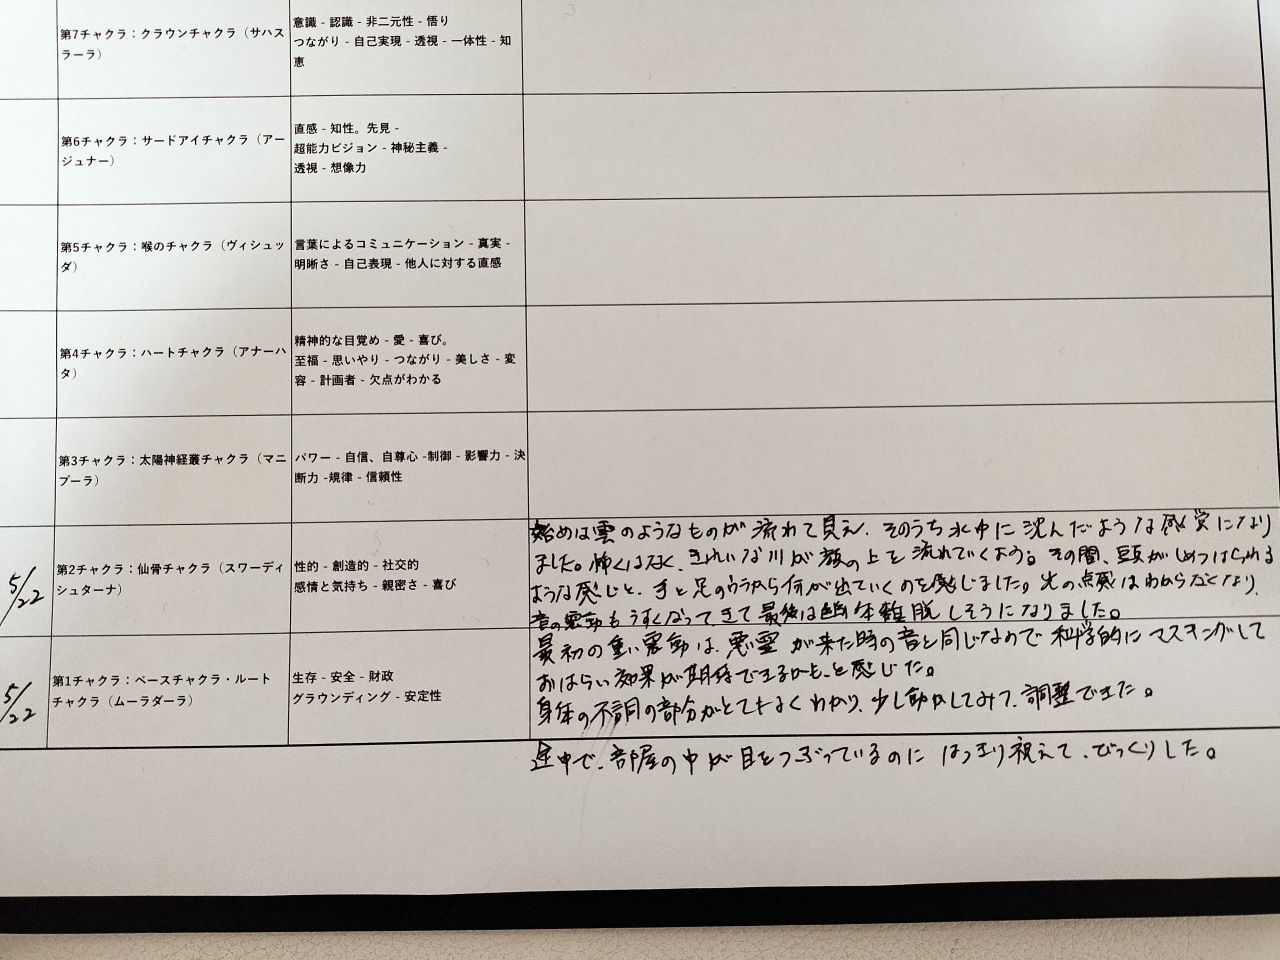 第7チャクラ：クラウンチャクラ（サハス
ラーラ）
意識 - 認識 - 非二元性 - 悟り
つながり - 自己実現 - 透視 - 一体性 - 知
恵
第6チャクラ：サードアイチャクラ（アー
ジュナー）
直感 - 知性。先見 -
超能力ビジョン - 神秘主義 -
透視 - 想像力
第5チャクラ：喉のチャクラ（ヴィシュッ
ダ）
言葉によるコミュニケーション - 真実 -
明晰さ - 自己表現 - 他人に対する直感
第4チャクラ：ハートチャクラ（アナーハ
タ）
精神的な目覚め - 愛 - 喜び。
至福 - 思いやり - つながり - 美しさ - 変
容 - 計画者 - 欠点がわかる
第3チャクラ：太陽神経叢チャクラ（マニ
プーラ）
パワー - 自信、自尊心 -制御 - 影響力 - 決
断力 -規律 - 信頼性
5/22
第2チャクラ：仙骨チャクラ（スワーディ
シュターナ）
性的 - 創造的 - 社交的
感情と気持ち - 親密さ - 喜び
始めは雲のようなものが流れて見え、そのうち水中に沈んだような感覚になり
ました。怖くはなく、きれいな川が顔の上を流れていくよう。その間、頭がしめつけられる
ような感じと、手と足のウラから何か出ていくのを感じました。光の点滅はわからなくなり、
音の震動もうすくなってきて最後は幽体離脱しそうになりました。
5/22
第1チャクラ：ベースチャクラ・ルート
チャクラ（ムーラダーラ）
生存 - 安全 - 財政
グラウンディング - 安定性
最初の重い震動は、悪霊が来た時の音と同じなので科学的にマスキングして
おはらい効果が期待できるかもと感じた。
身体の不調の部分がとてもよくわかり、少し動かしてみて、調整できた。
途中で、部屋の中が目をつぶっているのにはっきり視えて、びっくりした。